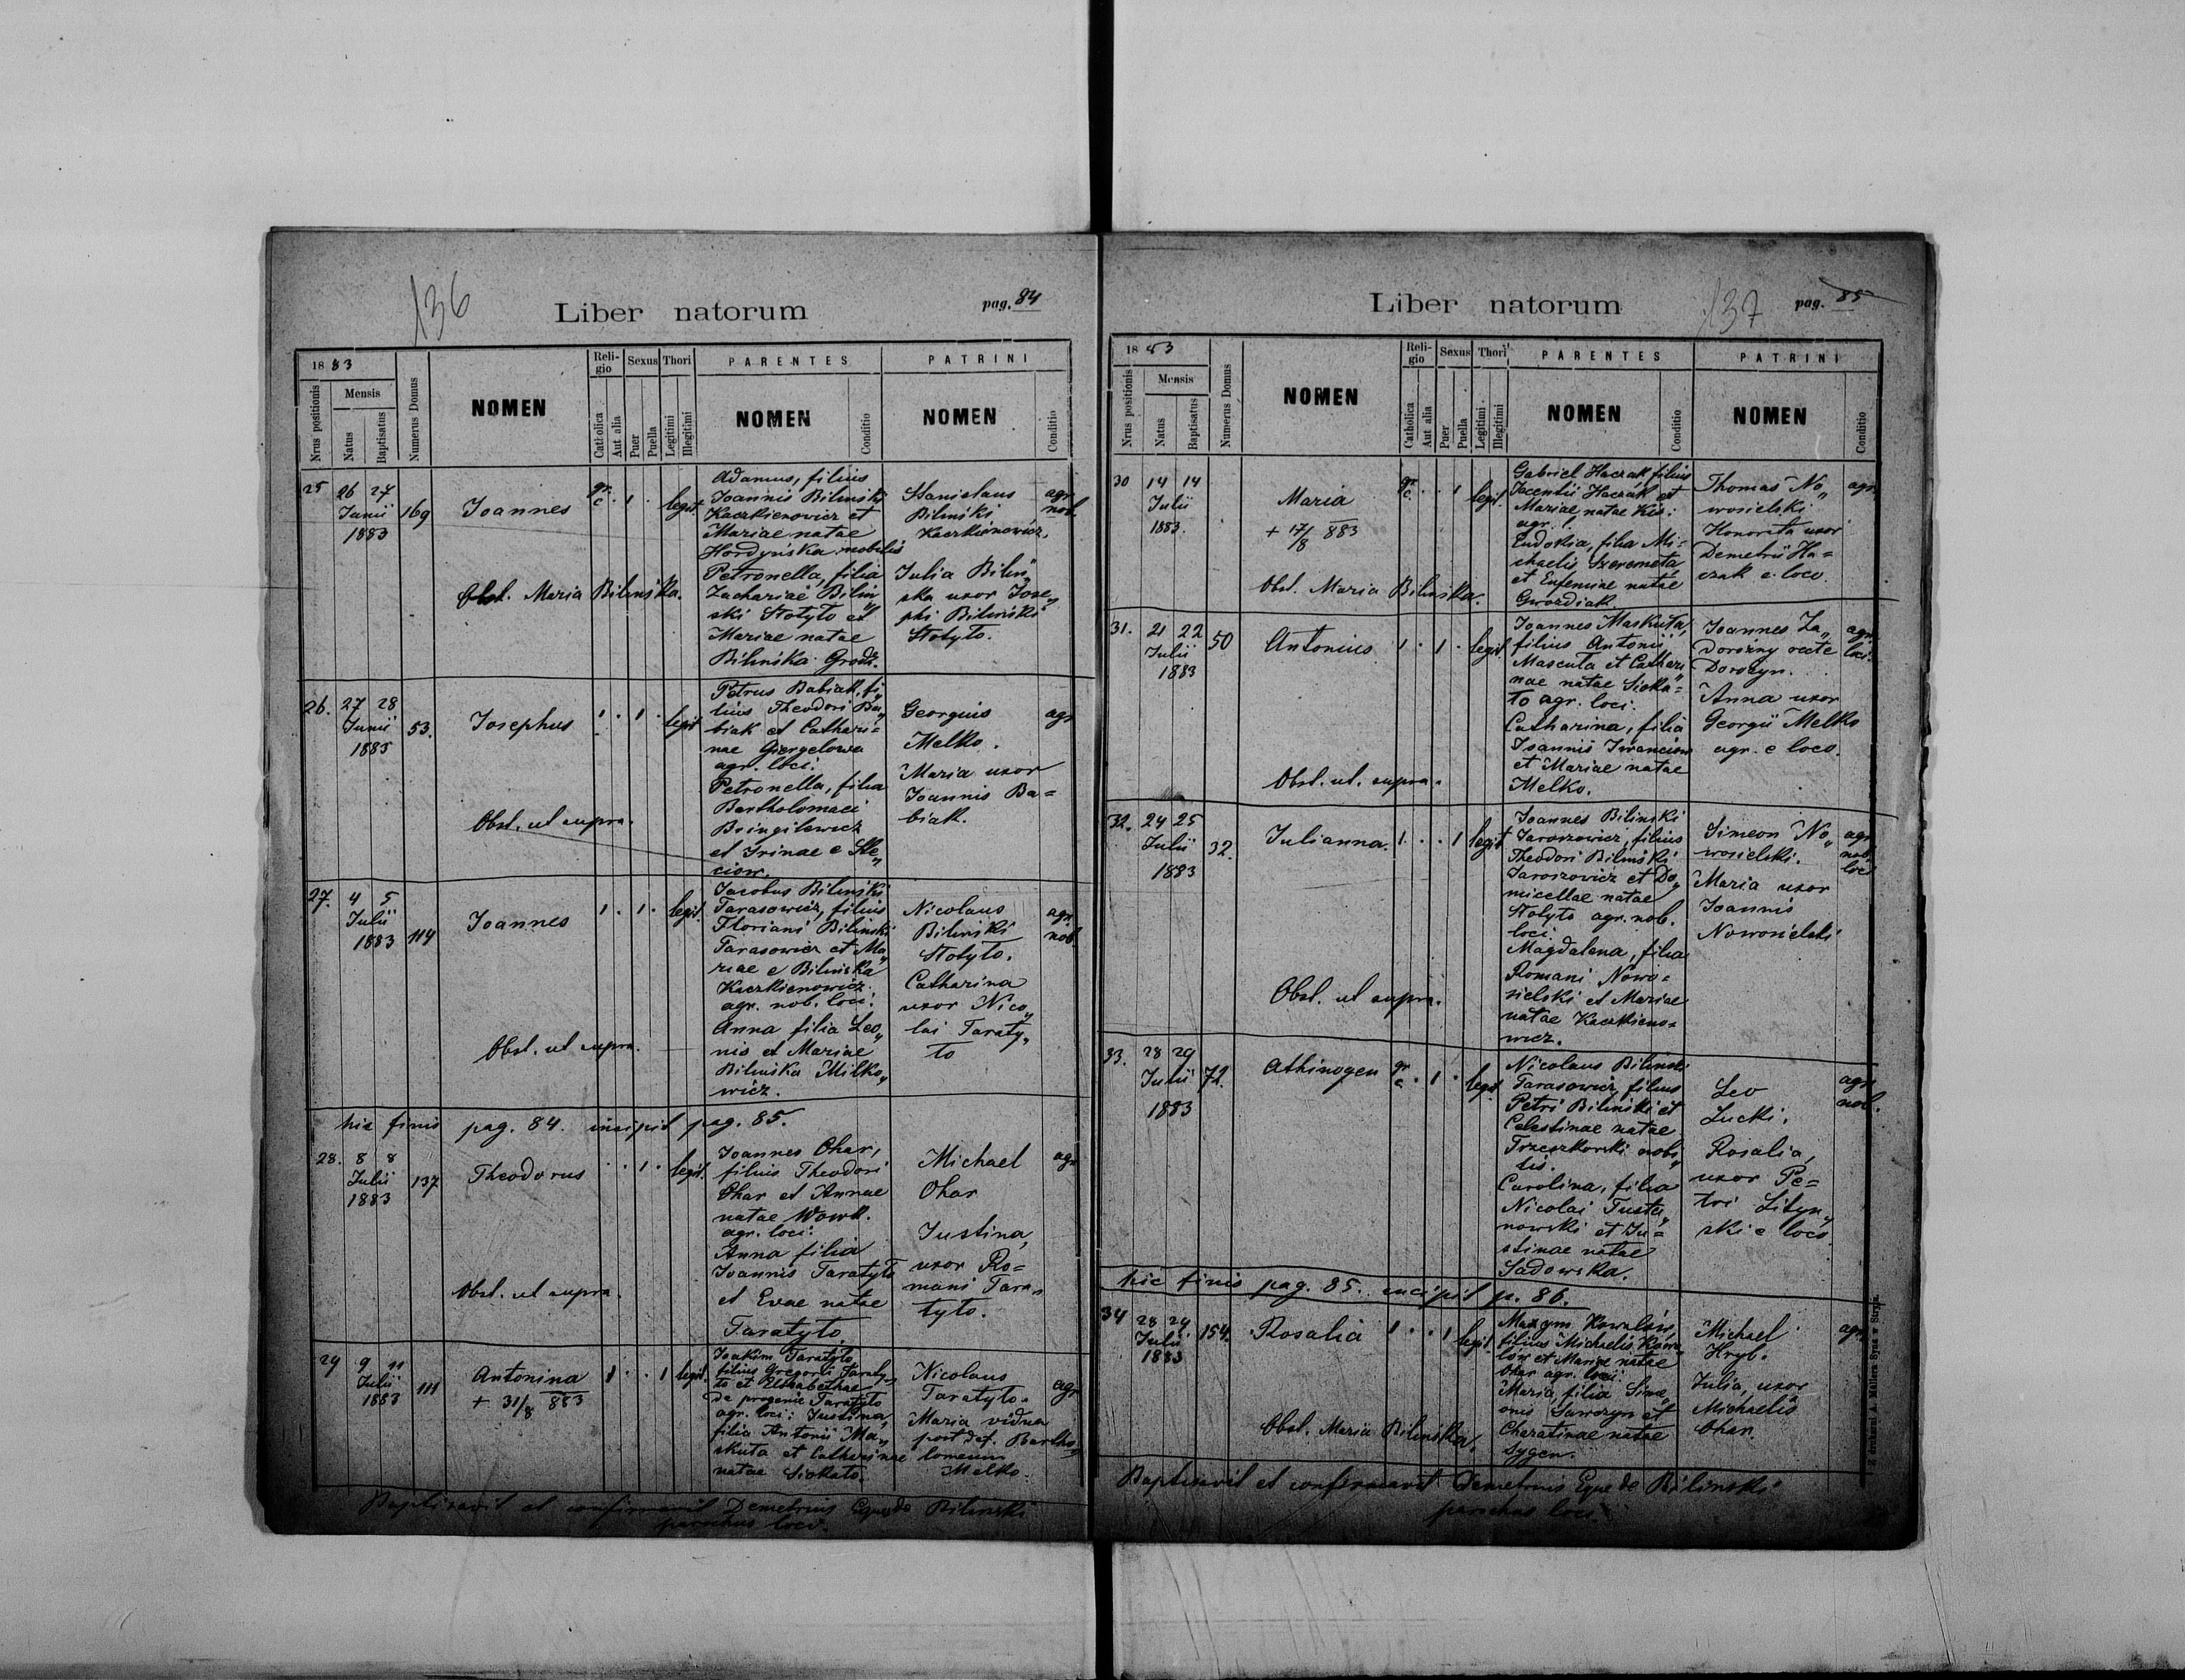 136
Liber natorum
pag. 84
1883
Nrus positionis
Mensis
Natus
Baptisatus
Numerus Domus
NOMEN
Religio
Catholica
Aut alia
Sexus
Puer
Puella
Thori
Legitimi
Illegitimi
PARENTES
NOMEN
Conditio
PATRINI
NOMEN
Conditio
25 26 27
Junii
1883
169
Joannes
gr. c. 1 legit.
Adamus, filius
Joannis Biliński
Kaczkienowicz et
Mariae natae
Hordyńska nobilis
Petronella, filia
Zachariae Bilin„
ski Stotyto et
Mariae natae
Bilińska Grodz.
Stanislaus
Biliński
Kaczkienowicz.
Julia Bilin„
ska uxor Jose„
phi Biliński
Stotyto.
agr.
nob.
Obst. Maria Bilińska.
26. 27 28
Junii
1883
53.
Josephus
1 . 1 . legit
Petrus Babiak, fi„
lius Theodori Ba„
biak et Cathari=
nae Giergelowa
agr. loci.
Petronella, filia
Bartholomaei
et Irinae e Ste„
ciow.
Georgius
Melko.
Maria uxor
Joannis Ba=
biak.
agr
Obst. ut supra.
27. 4 5
Julii
1883
114
Joannes
1 . 1 . legit.
Jacobus Biliński
Tarasowicz, filius
Floriani Biliński
Tarasowicz et Ma„
riae e Bilińska
Kaczkienowicz.
agr. nob. loci.
Anna filia Leo„
nis et Mariae
Bilińska Milko„
wicz.
Nicolaus
Biliński
Stotyto.
Catharina
uxor Nico„
lai Taraty„
to
agr
nob.
Obst. ut supra.
hic finis pag. 84. incipit pag. 85.
28. 8 8
Julii
1883
137
Theodorus
. . 1 . legit.
Joannes Ohar,
filius Theodori
Ohar et Annae
natae Wowk.
agr. loci.
Anna filia
Joannis Taratyto
et Evae natae
Taratyto
Michael
Ohar
Justina,
uxor Ro=
mani Tara„
tyto.
agr
Obst. ut supra.
29 9 11
Julii
1883
111
Antonina
+ 31/8 883
1 . . 1 legit.
Joakim Taratyto
filius Gregorii Taraty„
to et Elisabethae
de progenie Taratyto
agr. loci: Justina,
filia Antonii Ma„
skuta et Catharinae
natae Siokato.
Nicolaus
Taratyto.
Maria vidua
post def. Bartho„
lomeum
Melko.
agr
Baptisavit et confirmavit Demetrius Eques de Biliński
parochus loci.
Liber natorum
137
pag. 85
1883
Nrus positionis
Mensis
Natus
Baptisatus
Numerus Domus
NOMEN
Religio
Catholica
Aut alia
Sexus
Puer
Puella
Thori
Legitimi
Illegitimi
PARENTES
NOMEN
Conditio
PATRINI
NOMEN
Conditio
30 14 14
Julii
1883.
Maria
+ 17/8 883
gr. c. . . 1 legit.
Gabriel Haczak, filius
Jacentii Haczak et
Mariae natae Kis:
agr. l.
Eudokia, filia Mi=
chaelis Szeremeta
et Eufemiae natae
Gwozdiak.
Thomas No„
wosielski
Honorata uxor
Demetrii Ha=
czak e loco.
agr.
Obst. Maria Bilińska.
31. 21 22
Julii
1883
50
Antonius
1 . 1 . legit.
Joannes Maskuta,
filius Antonii
Mascuta et Cathari„
nae natae Sioka=
to agr. loci.
Catharina, filia
Joannis Iwanciow
et Mariae natae
Melko.
Joannes Za„
dorożny recte
Dorożyn.
Anna uxor
Georgii Melko
agr. e loco.
agr.
loci.
Obst. ut supra.
32. 24 25
Julii
1883
32.
Julianna.
1 . . 1 legit
Joannes Biliński
Jaroszowicz, filius
Theodori Biliński
Jaroszowicz et Do„
micellae natae
Stotyto agr. nob.
loci.
Magdalena, filia
Romani Nowo=
sielski et Mariae
natae Kaczkieno=
wicz.
Simeon No„
wosielski.
Maria uxor
Joannis
Nowosielski
agr.
nob.
loci
Obst. ut supra.
33. 28 29
Julii
1883
72.
Athinogen
gr. c. 1 . legit.
Nicolaus Biliński
Tarasowicz, filius
Petri Biliński et
Celestinae natae
Trzeszkowski nobi„
lis.
Carolina, filia
Nicolai Tusta„
nowski et Ju=
stinae natae
Sadowska.
Leo
Lucki.
Rosalia,
uxor Pe=
tri Lityn„
ski e loco
agr.
nob.
hic finis pag. 85. incipit p. 86.
34 28 29
Julii
1883
154.
Rosalia
1 . . 1 legit.
Maxym Kowalów,
filius Michaelis Kowa„
lów et Mariae natae
Ohar agr. loci:
Maria, filia Sime„
onis Sawczyn et
Charatinae natae
Sygen.
Michael
Hryb.
Julia, uxor
Michaelis
Ohar.
agr.
Obst. Maria Bilińska.
Baptisavit et confirmavit Demetrius Eques de Biliński
parochus loci.
Z drukarni A. Müllera Syna w Stryju.